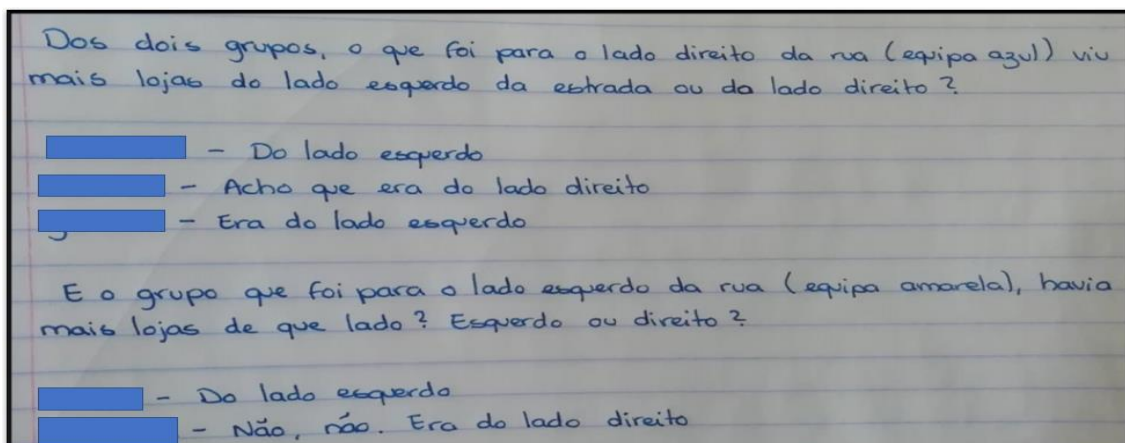 Dos dois grupos, o que foi para o lado direito da rua (equipa azul) viu
mais lojas do lado esquerdo da estrada ou da lado direito?
- Do lado esquerdo
- Acho que era do lado direito
- Era do lado esquerdo
E o grupo que foi para o lado esquerdo da rua (equipa amarela), havia
mais lojas de que lado? Esquerdo ou direito?
- Do lado esquerdo
- Não, não. Era do lado direito